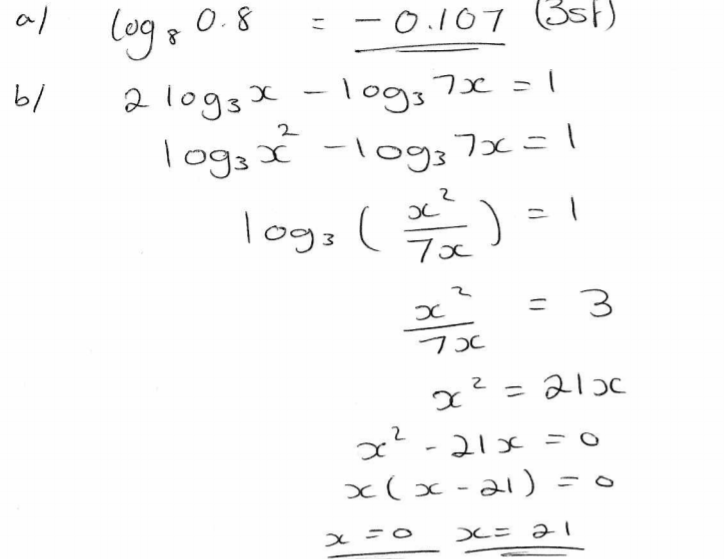 a/ log₈ 0.8 = -0.107 (3sf)
b/ 2 log₃x - log₃7x = 1
log₃x² - log₃7x = 1
log₃(x²/7x) = 1
x²/7x = 3
x² = 21x
x² - 21x = 0
x(x - 21) = 0
x = 0 x = 21